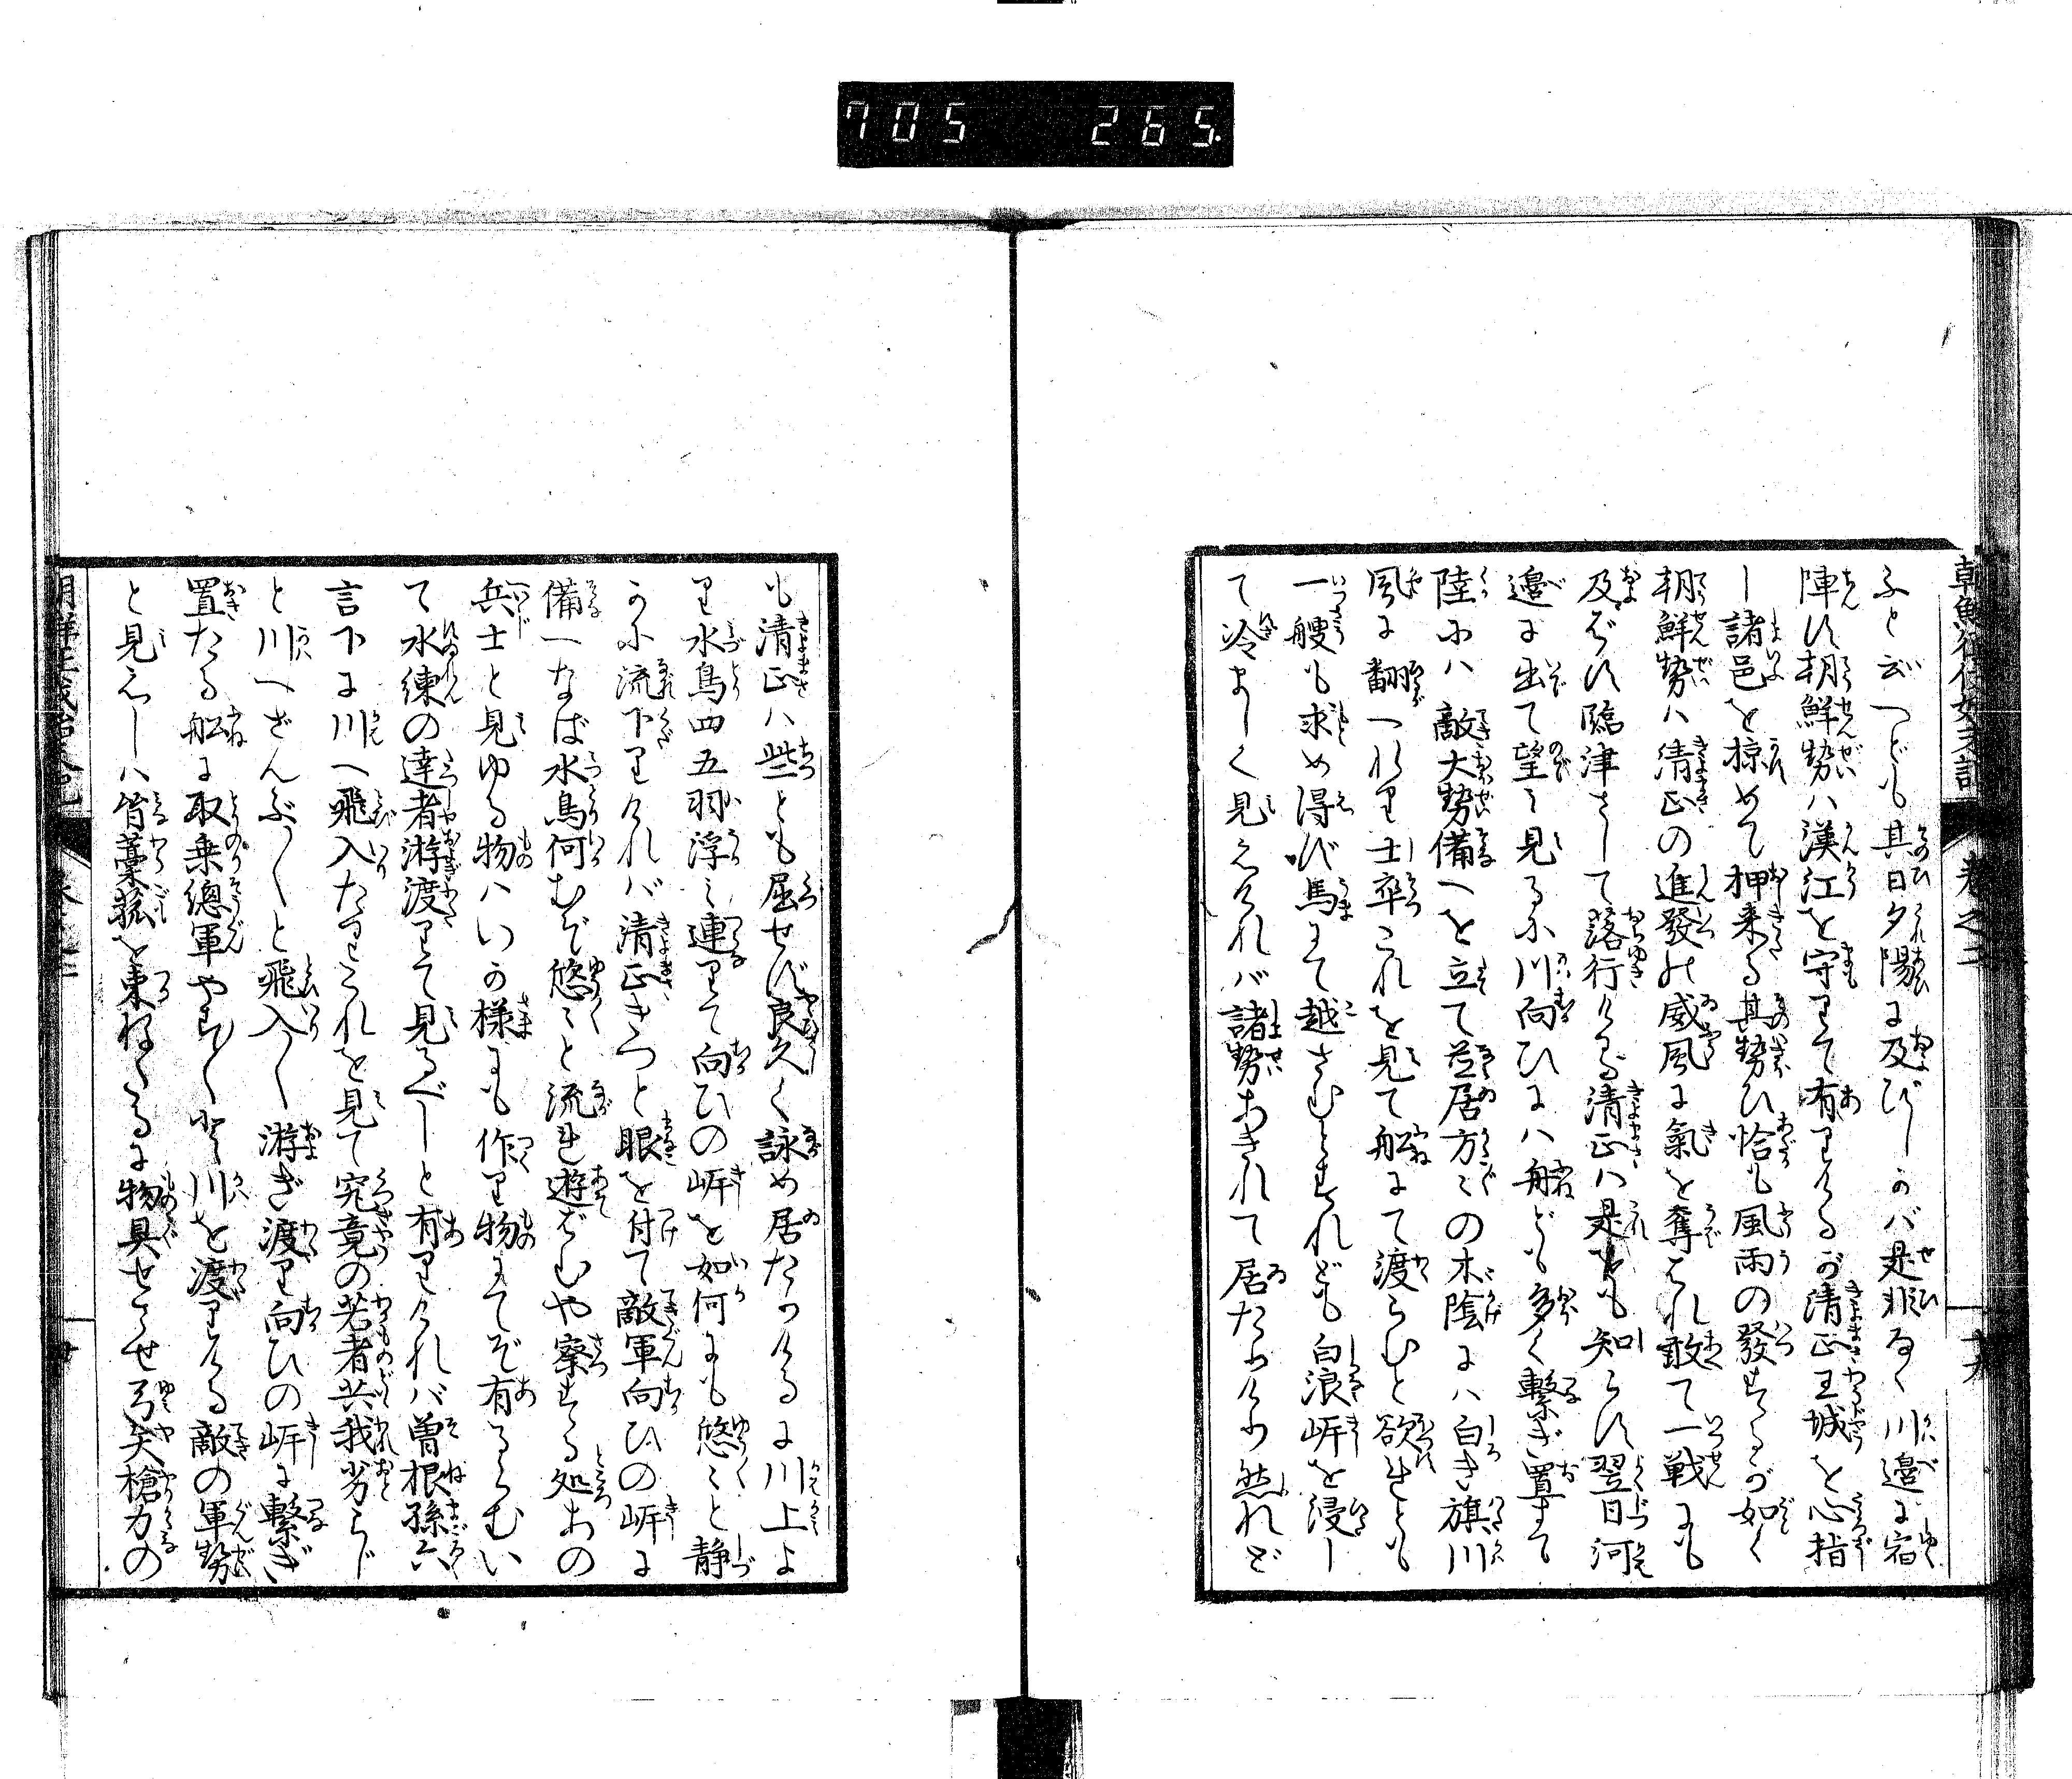 705 265.
朝鮮征伐始末記 卷之二 十九
ふと云へども其日夕陽に及びしかバ是非なく川邉に宿
陣す朝鮮勢ハ漢江を守りて有りけるが清正王城を心指
し諸邑を掠めて押来る其勢ひ恰も風雨の發するが如く
朝鮮勢ハ清正の進發の威風に氣を奪ハれ敢て一戦にも
及ばず臨津さして落行ける清正ハ是をも知らず翌日河
邉に出て望ミ見るに川向ひにハ舩ども多く繋ぎ置まて
陸にハ敵大勢備へを立て並居方〻の木陰にハ白き旗川
風に翻へれり士卒これを見て舩にて渡らむと欲すとも
一艘も求め得ず馬にて越さむとすれども白浪岸を浸し
て冷まじく見えければ諸勢あきれて居たりけり然れど
も清正ハ些とも屈せず良久く詠め居たりけるに川上よ
り水鳥四五羽浮ミ連りて向ひの岸を如何にも悠〻と静
かに流下りければ清正きつと眼を付て敵軍向ひの岸に
備へなば水鳥何むぞ悠〻と流れ遊ばむや察する処あの
兵士と見ゆる物ハいか様にも作り物にてぞ有るらむい
て水練の達者游渡りて見るべしと有りければ曽根孫六
言下に川へ飛入たりこれを見て究竟の若者共我劣らじ
と川へざんぶ〳〵と飛入〳〵游ぎ渡り向ひの岸に繋ぎ
置たる舩に取乗總軍やす〳〵と川を渡りける敵の軍勢
と見えしハ皆藁菰を束ねたるに物具させ弓矢槍刀の